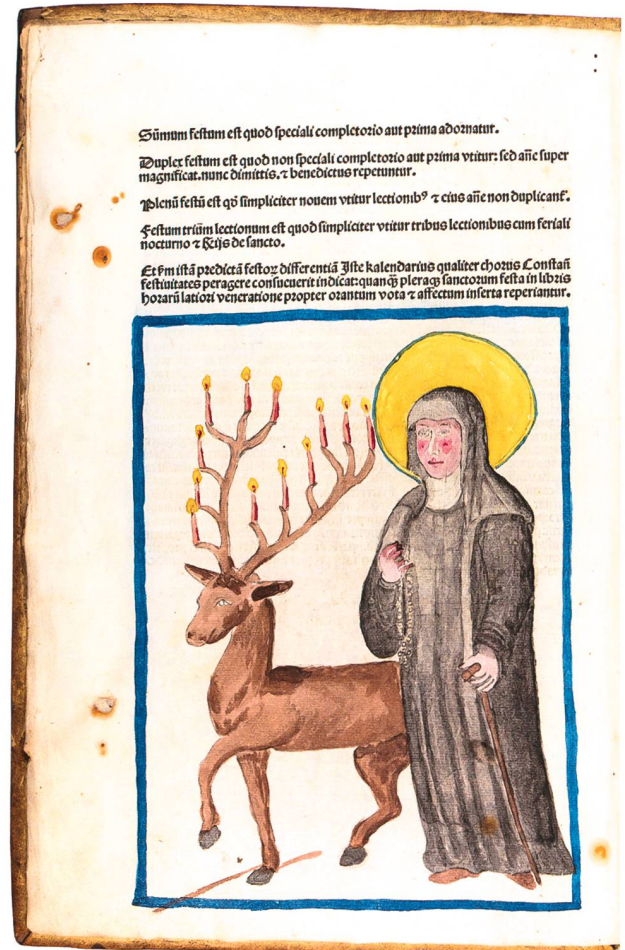 Sūmum festum est quod speciali completorio aut prima adornatur.
Duplex festum est quod non speciali completorio aut prima vtitur: sed añe super
magnificat. nunc dimittis. ⁊ benedictus repetuntur.
Plenū festū est qō simpliciter nouem vtitur lectionibꝰ ⁊ eius añe non duplicant̄.
Festum triūm lectionum est quod simpliciter vtitur tribus lectionibus cum feriali
nocturno ⁊ de sancto.
Et istā predictā festoꝝ differentiā Iste kalendarius qualiter chorus Constañ
festiuitates peragere consueuerit indicat: quanqꝫ pleraqꝫ sanctorum festa in libris
horarū latiori veneratione propter orantum vota ⁊ affectum inserta reperiantur.